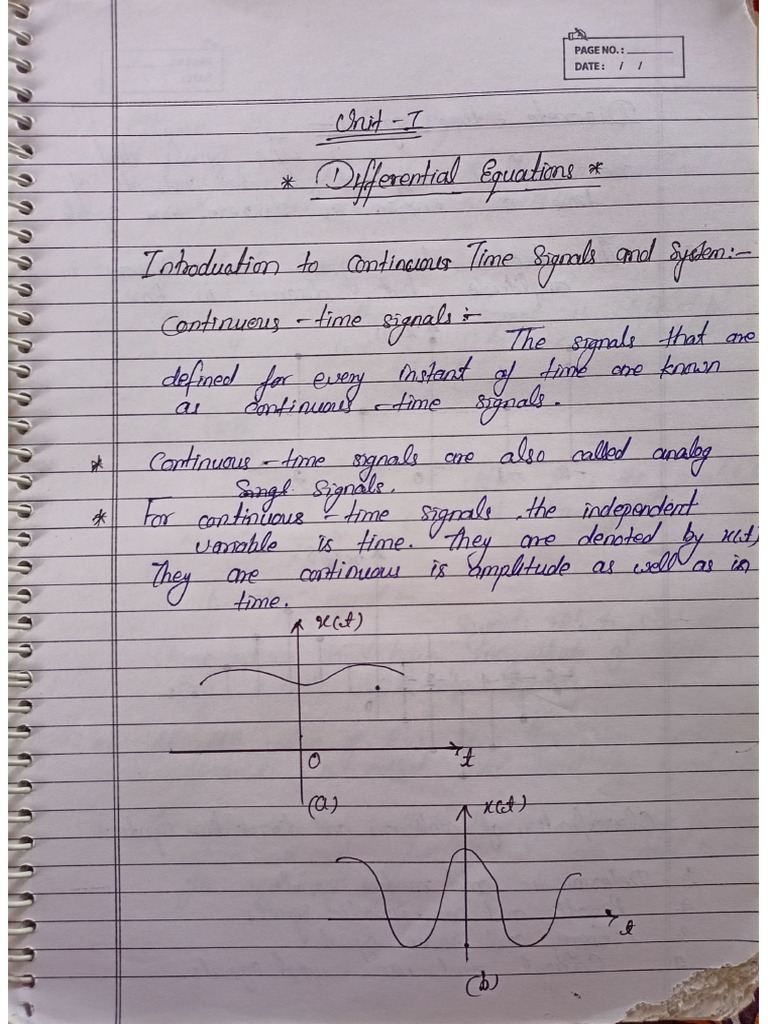 PAGE NO.:
DATE: / /
Unit - I
* Differential Equations *
Introduction to continuous Time Signals and System:-
Continuous - time signals :-
The signals that are
defined for every instant of time are known
as continuous - time signals.
* Continuous - time signals are also called analog
Signals.
* For continuous - time signals, the independent
variable is time. They are denoted by x(t)
They are continuous is amplitude as well as in
time.
x(t)
0
t
(a)
x(t)
t
(b)